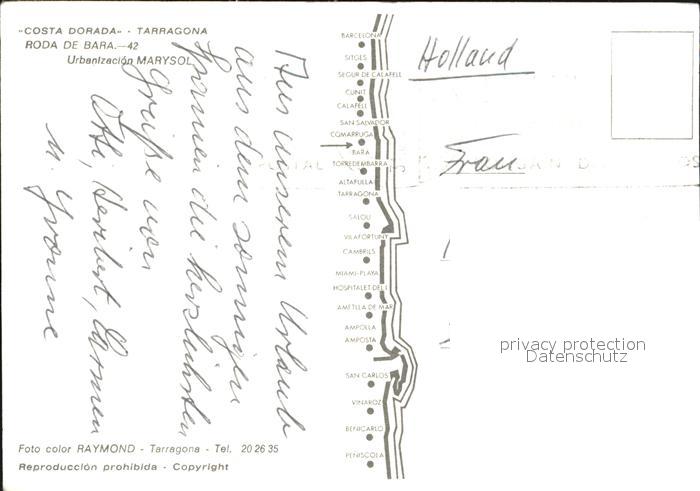 "COSTA DORADA" - TARRAGONA
RODA DE BARA.—42
Urbantzación MARYSOL
Aus unserem Urlaub
aus dem sonnigen
Spanien die herzlichsten
Grüße von
Otti, Herbert, Carmen
u. Yvonne
Foto color RAYMOND - Tarragona - Tel. 20 26 35
Reproducción prohibida - Copyright
BARCELONA
SITGES
SEGUR DE CALAFELL
CUNIT
CALAFELL
SAN SALVADOR
COMARRUGA
BARA
TORREDEMBARRA
ALTAFULLA
TARRAGONA
SALOU
VILAFORTUNY
CAMBRILS
MIAMI-PLAYA
HOSPITALET DEL I.
AMETLLA DE MAR
AMPOLLA
AMPOSTA
SAN CARLOS
VINAROZ
BENICARLO
PEÑISCOLA
Holland
Frau
privacy protection
Datenschutz